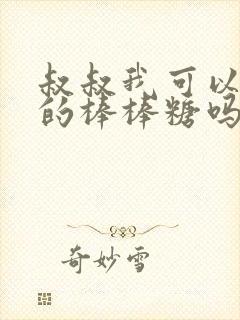 叔叔我可以
的棒棒糖吗
奇妙雪